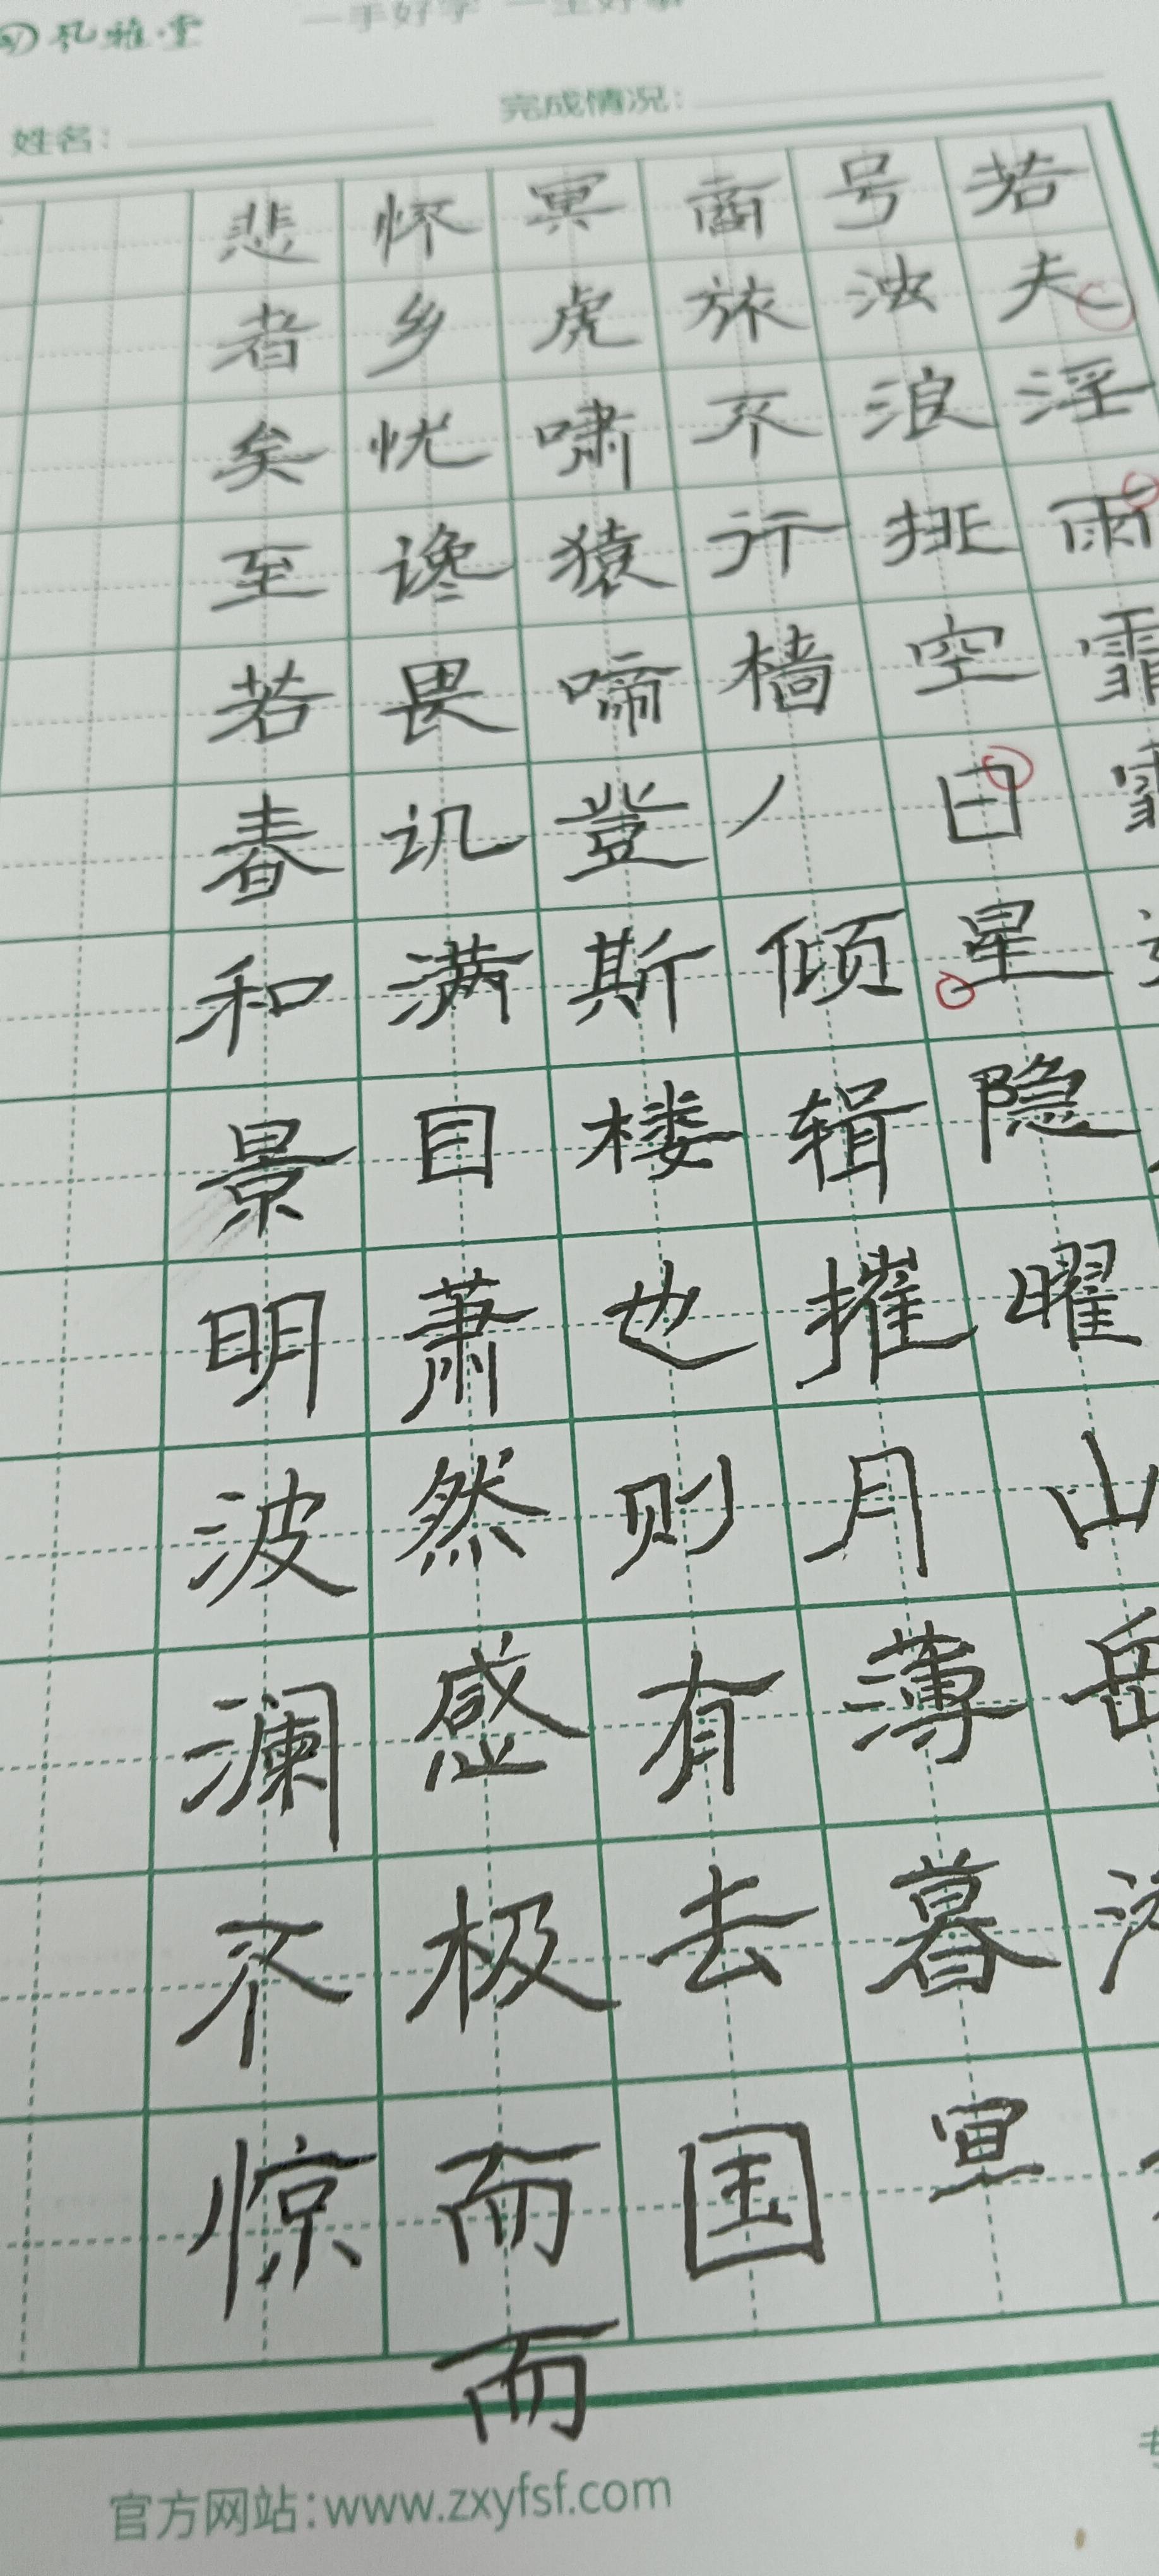 姓名:
完成情况:
若夫淫雨霏
号浊浪排空日星隐曜山岳
商旅不行樯丿倾辑摧月薄暮
冥虎啸猿啼登斯楼也则有去国
怀乡忧谗畏讥满目萧然感极而
而
悲者矣至若春和景明波澜不惊
官方网站:www.zxyfsf.com